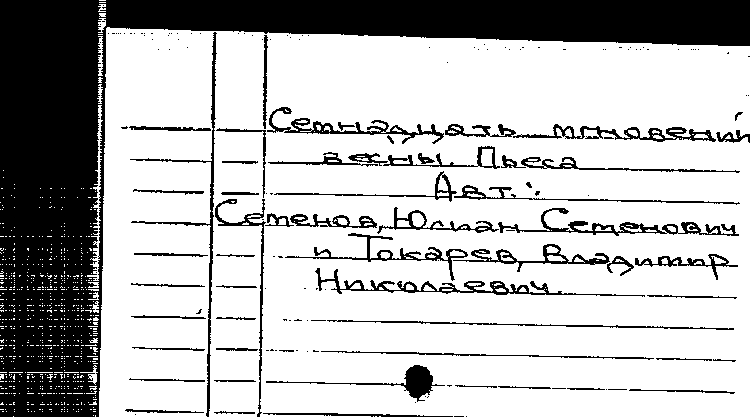 Семнадцать мгновений
весны. Пьеса
Авт.:
Семенов, Юлиан Семенович
и Токарев, Владимир
Николаевич.